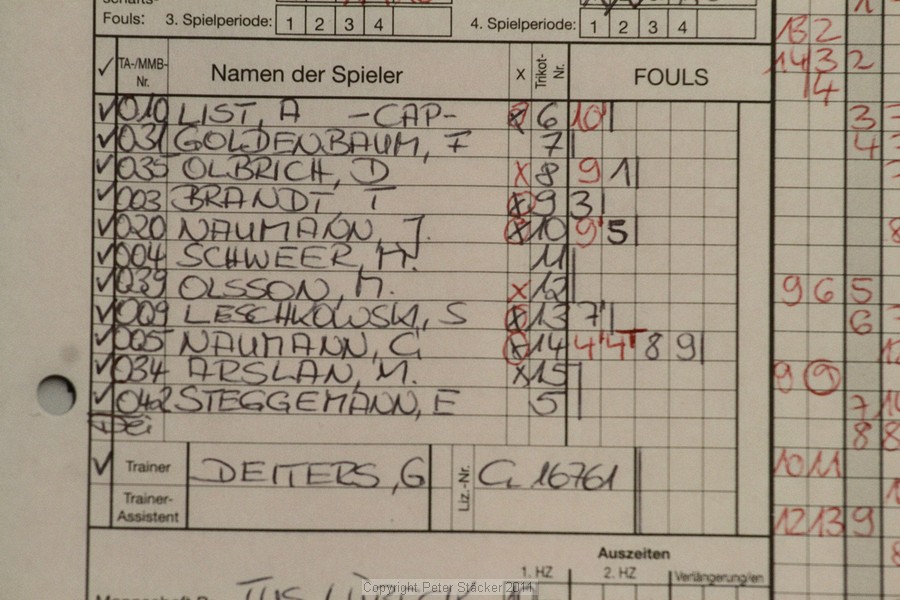 Fouls: 3. Spielperiode: 1 2 3 4 4. Spielperiode: 1 2 3 4
✓ TA-/MMB-Nr. Namen der Spieler x Trikot-Nr. FOULS
✓ 010 LIST, A -CAP- 6 10
✓ 031 GOLDENBAUM, F 7
✓ 035 OLBRICH, D x 8 9 1
✓ 003 BRANDT T x 9 3
✓ 020 NAUMANN, J. x 10 9 5
✓ 004 SCHWEER, M. 11
✓ 039 OLSSON, M. x 12
✓ 009 LESCHKOWSKI, S x 13 7
✓ 005 NAUMANN, C x 14 4 4T 8 9
✓ 034 ARSLAN, M. x 15
✓ 042 STEGGEMANN, E 5
✓ Trainer DEITERS, G Liz.-Nr. C 16761
Trainer-Assistent
Auszeiten
1. HZ 2. HZ Verlängerung/en
Copyright Peter Stäcker 2011
13 2
14 3 2
14
3
4
9 6 5
6
9 9
7
8 8
10 11
12 13 9